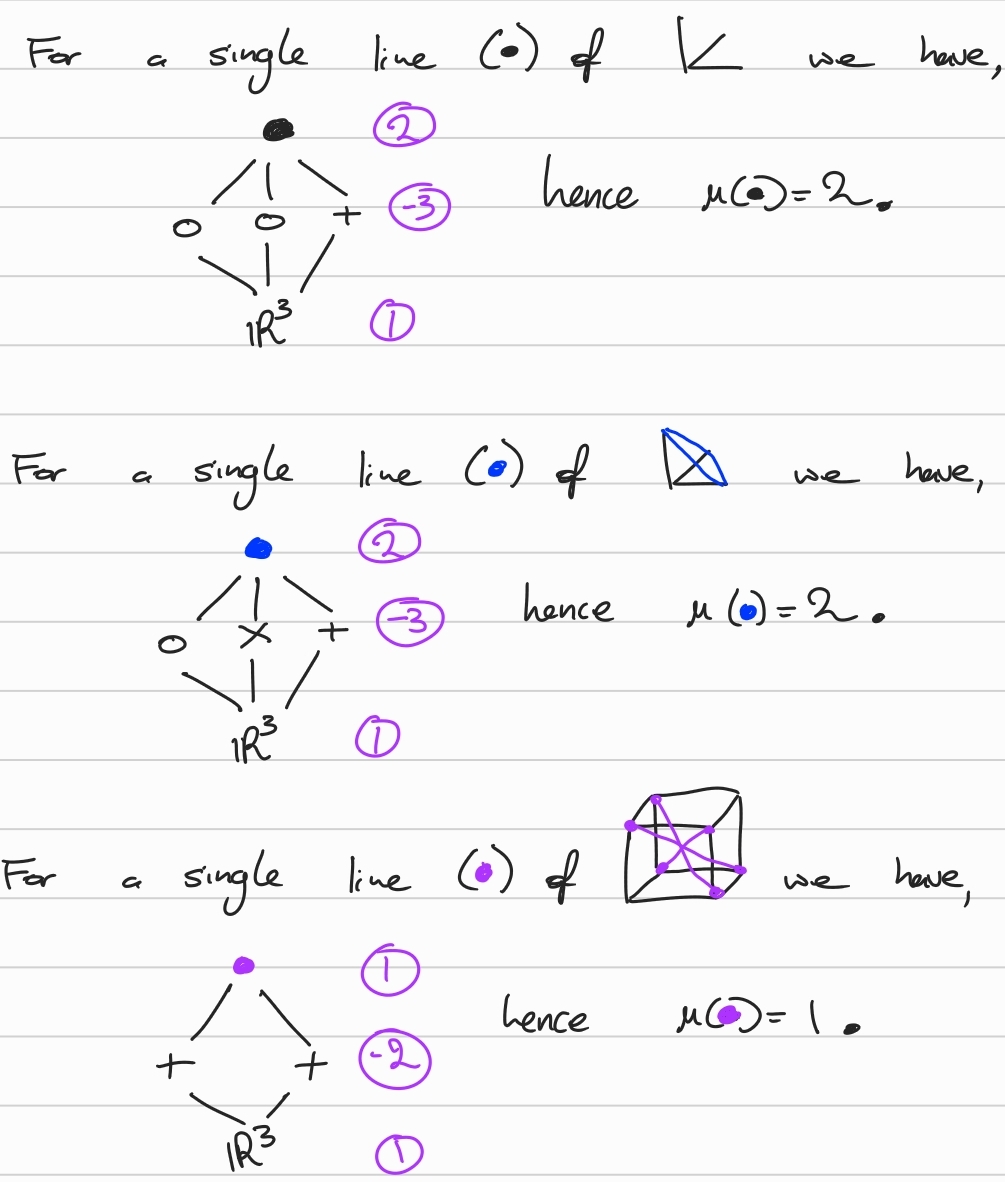 For a single line (•) of we have,
②
o o + -3 hence μ(•)=2.
ℝ³ ①
For a single line (•) of we have,
②
o x + -3 hence μ(•)=2.
ℝ³ ①
For a single line (•) of we have,
①
+ + -2 hence μ(•)=1.
ℝ³ ①